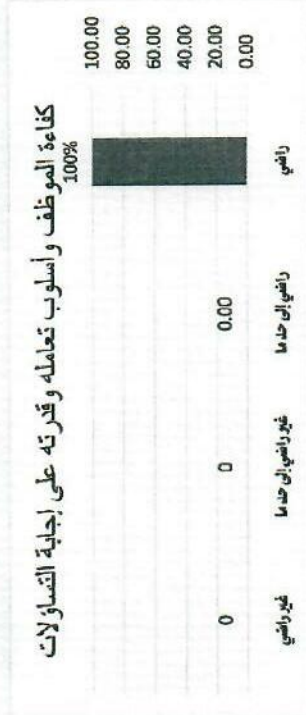 كفاءة الموظف وأسلوب تعامله وقدرته على إجابة التساؤلات
100%
100.00
80.00
60.00
40.00
20.00
0.00
0.00
0
0
راضي
راضي إلى حد ما
غير راضي إلى حد ما
غير راضي